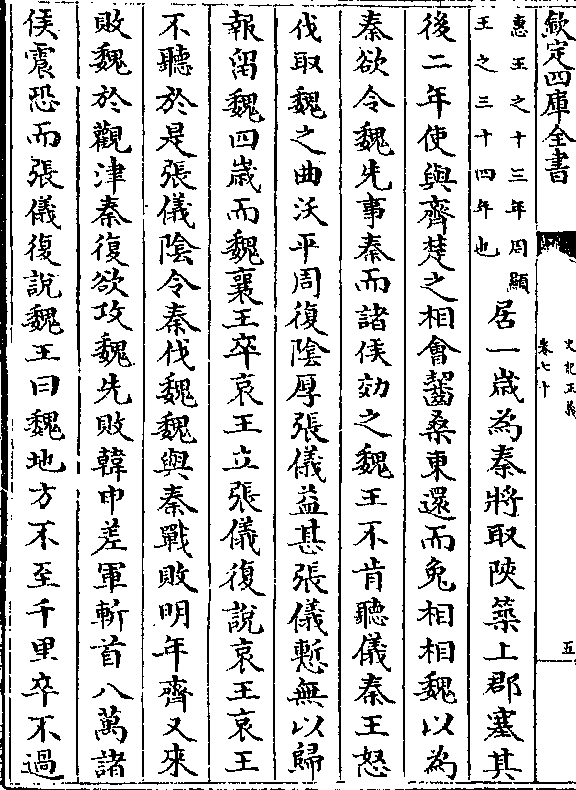 欽定四庫全書
史記正義
卷七十
五
惠王之十三年周顯
王之三十四年也
居一歳為秦將取陜築上郡塞其
後二年使與齊楚之相會齧桑東還而免相相魏以為
秦欲令魏先事秦而諸侯效之魏王不肯聽儀秦王怒
伐取魏之曲沃平周復陰厚張儀益甚張儀慙無以歸
報留魏四歳而魏襄王卒哀王立張儀復說哀王哀王
不聽於是張儀陰令秦伐魏魏與秦戰敗明年齊又來
敗魏於觀津秦復欲攻魏先敗韓申差軍斬首八萬諸
侯震恐而張儀復說魏王曰魏地方不至千里卒不過